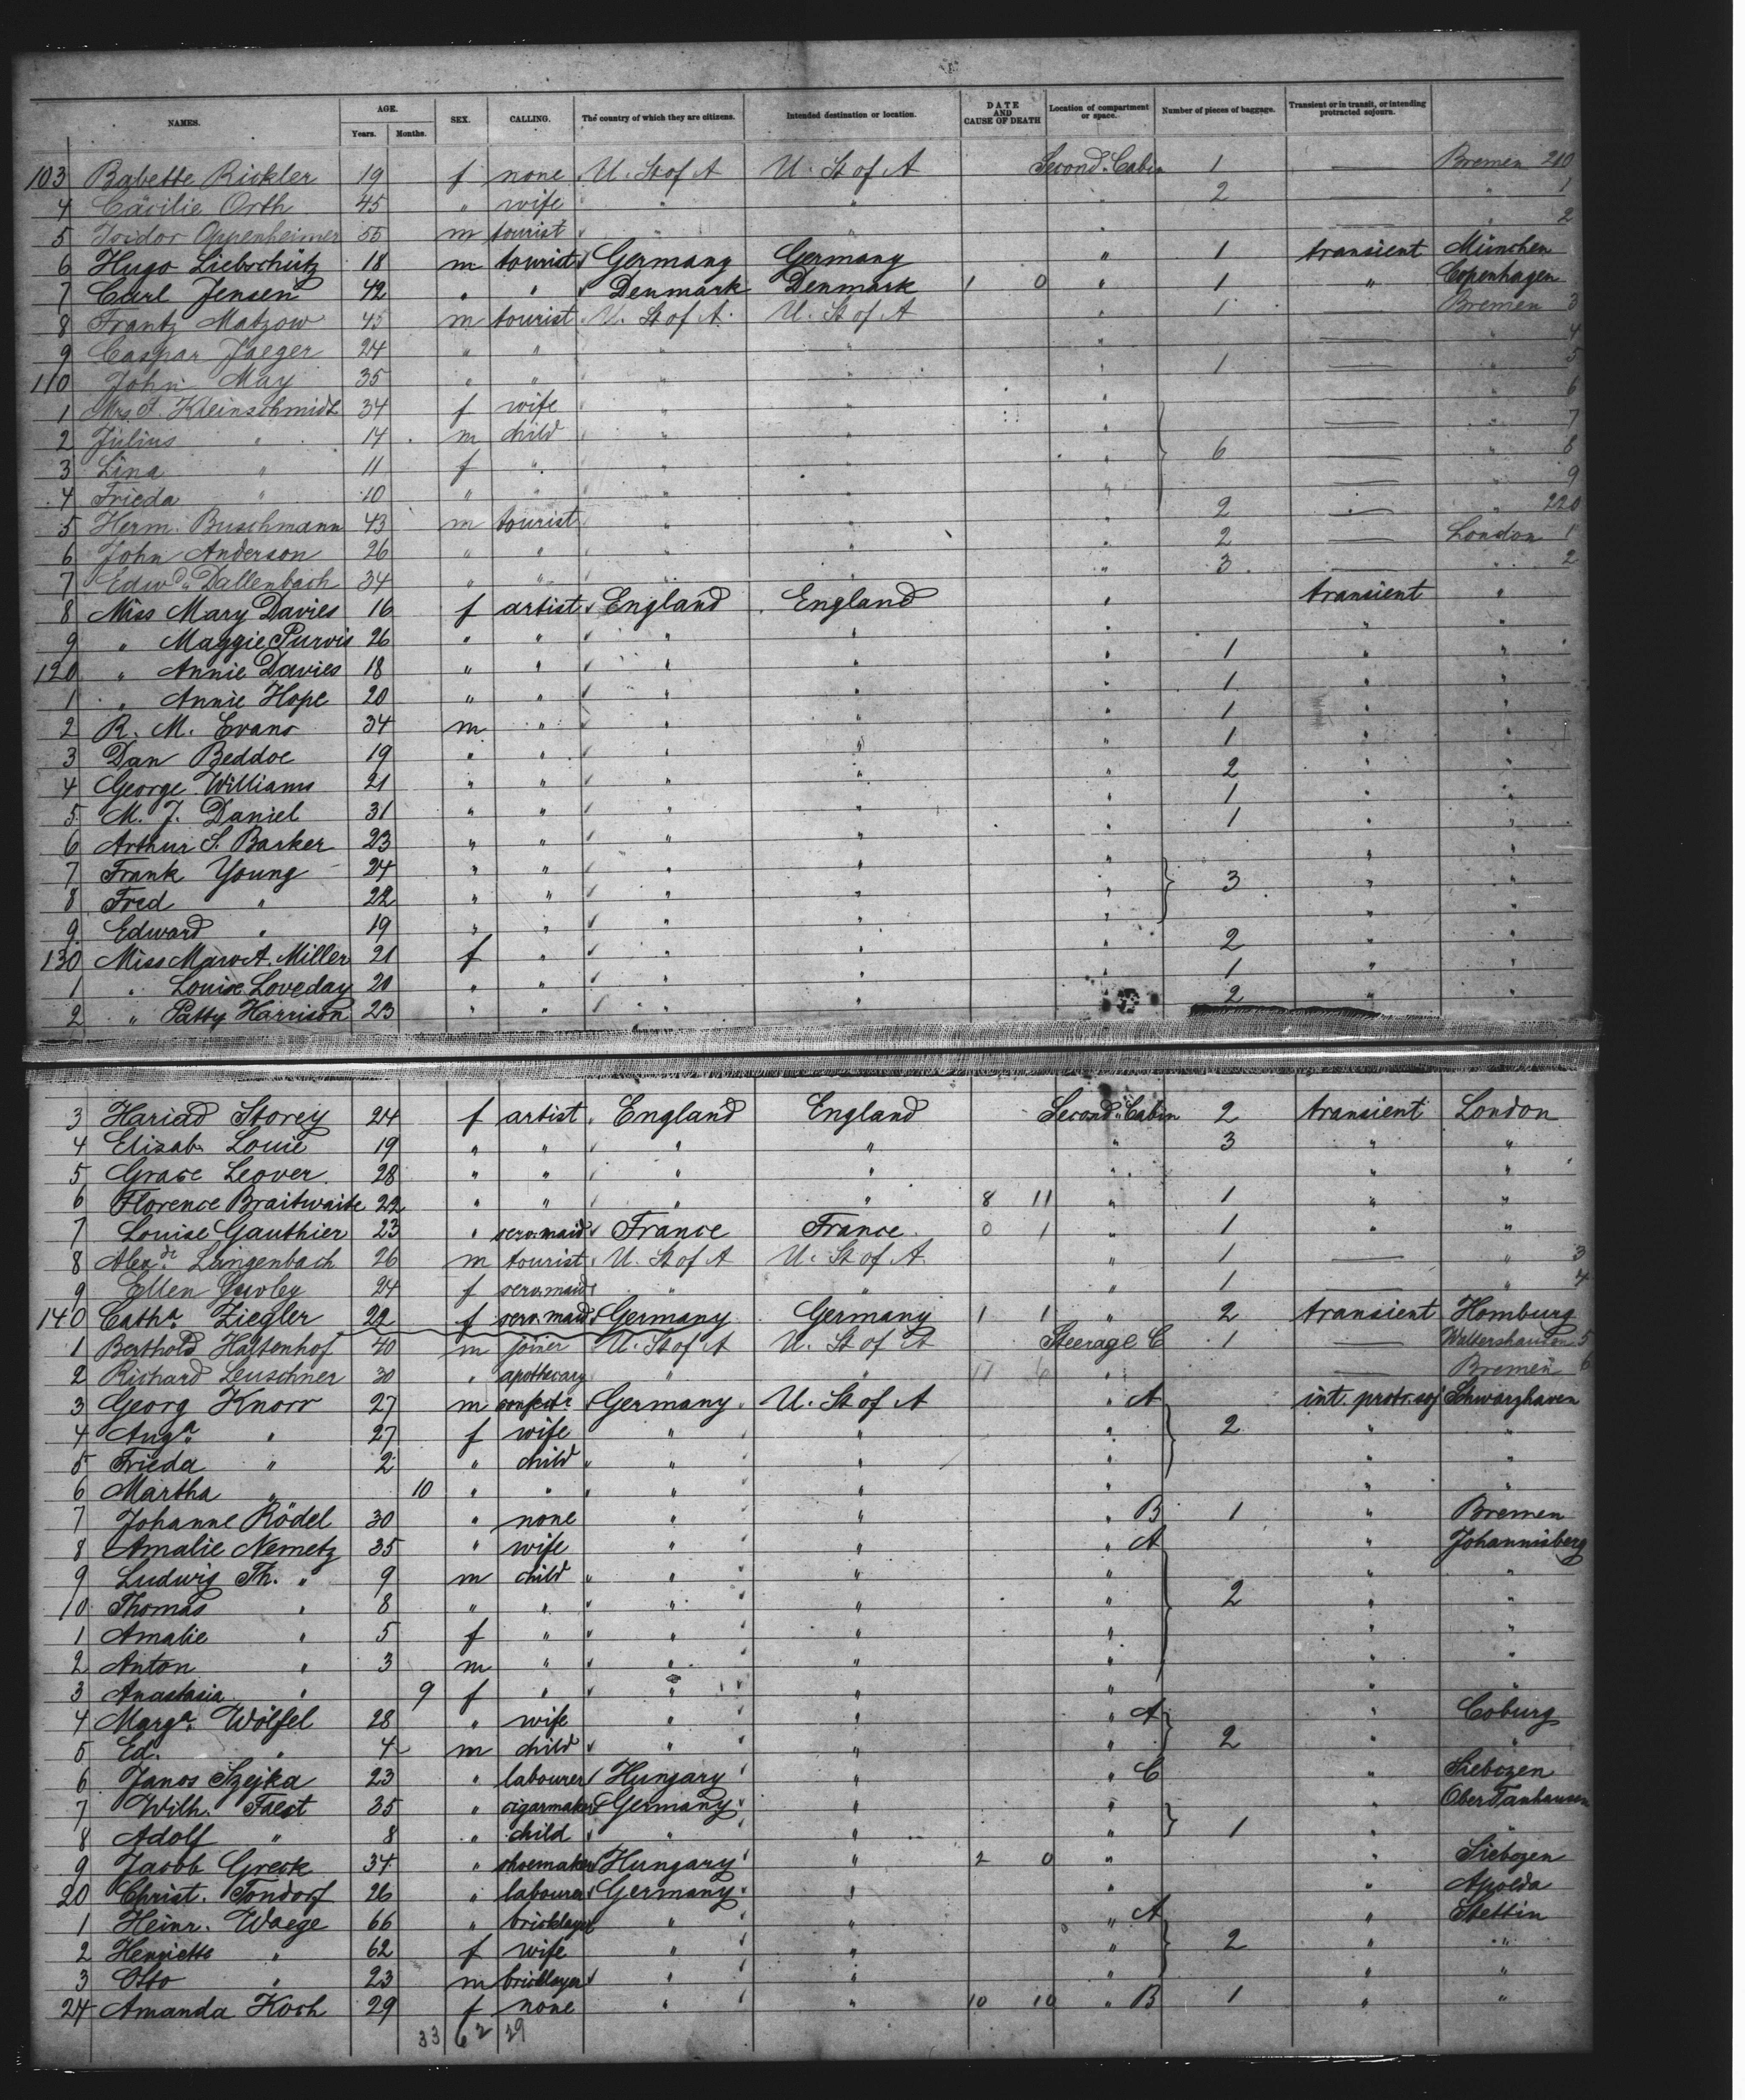 NAMES. AGE. Years. Months. SEX. CALLING. The country of which they are citizens. Intended destination or location. DATE AND CAUSE OF DEATH Location of compartment or space. Number of pieces of baggage. Transient or in transit, or intending protracted sojourn.
103 Babette Rickler 19 f none U. St of A U. St of A Second Cabin 1 — Bremen 210
4 Cäcilie Orth 45 " wife " " " 2 — " 1
5 Isidor Oppenheimer 55 m tourist " " " — " 2
6 Hugo Liebschütz 18 m tourist Germany Germany " 1 transient München
7 Carl Jensen 42 " " Denmark Denmark 1 0 " 1 " Copenhagen
8 Frantz Matzow 45 m tourist U. St of A. U. St of A " 1 — Bremen 3
9 Caspar Jaeger 24 " " " " " — " 4
110 John May 35 " " " " " 1 — " 5
1 Mrs A. Kleinschmidt 34 f wife " " " — " 6
2 Julius " 14 m child " " " — " 7
3 Lina " 11 f " " " " 6 — " 8
4 Frieda " 10 " " " " " — " 9
5 Herm. Buschmann 43 m tourist " " " 2 — " 220
6 John Anderson 26 " " " " " 2 — London 1
7 Edwd. Dallenbach 34 " " " " " 3 — " 2
8 Miss Mary Davies 16 f artist England England " transient "
9 " Maggie Purvis 26 " " " " " " "
120 " Annie Davies 18 " " " " " 1 " "
1 " Annie Hope 20 " " " " " 1 " "
2 R. M. Evans 34 m " " " " 1 " "
3 Dan Beddoe 19 " " " " " 1 " "
4 George Williams 21 " " " " " 2 " "
5 M. J. Daniel 31 " " " " " 1 " "
6 Arthur S. Barker 23 " " " " 1 " "
7 Frank Young 24 " " " " " " "
8 Fred " 22 " " " " " 3 " "
9 Edward " 19 " " " " " " "
130 Miss Marv A. Miller 21 f " " " " 2 " "
1 " Louise Loveday 20 " " " " " 1 " "
2 " Patty Harrison 23 " " " " 2 " "
3 Hariad Storey 24 f artist England England Second Cabin 2 transient London
4 Elisab. Louie 19 " " " " " 3 " "
5 Grace Leover 28 " " " " " " "
6 Florence Braitwaite 22 " " " " 8 11 " 1 " "
7 Louise Gauthier 23 " serv. maid France France 0 1 " 1 " "
8 Alexdr. Langenbach 26 m tourist U. St of A U. St of A " 1 — " 3
9 Ellen 24 f serv. maid " " " 1 — " 4
140 Catha. Ziegler 22 f serv. maid Germany Germany 1 1 " 2 transient Homburg
1 Berthold Haltenhof 40 m joiner U. St of A U. St of A Steerage C 1 — Waltershausen 5
2 Richard Leuschner 30 " apothecary " " 17 6 " — Bremen 6
3 Georg Knorr 27 m Germany U. St of A " A int. protr. soj Schwarzhaven
4 Auga. " 27 f wife " " " 2 " "
5 Frieda " 2 " child " " " " "
6 Martha " 10 " " " " " " "
7 Johanne Rödel 30 " none " " " B 1 " Bremen
8 Amalie Nemetz 35 " wife " " " A " Johannisberg
9 Ludwig Th. " 9 m child " " " " "
10 Thomas " 8 " " " " " 2 " "
1 Amalie " 5 f " " " " " "
2 Anton " 3 m " " " " " "
3 Anastasia " 9 f " " " " " "
4 Marga. Wölfel 28 " wife " " " A " Coburg
5 Ed. " 4 m child " " " 2 " "
6 Janos Szejka 23 " labourer Hungary " " C " Siebozen
7 Wilh. Faect 35 " cigarmaker Germany " " " Ober Tanhausen
8 Adolf " 8 " child " " " 1 " "
9 Jacob Greck 34 " shoemaker Hungary " 2 0 " " Siebozen
20 Christ. Tondorf 26 " labourer Germany " " " Apolda
1 Heinr. Waege 66 " bricklayer " " " A " Stettin
2 Henriette " 62 f wife " " " 2 " "
3 Otto " 23 m bricklayer " " " " "
24 Amanda Koch 29 f none " " 10 10 " B 1 " "
33 62 29